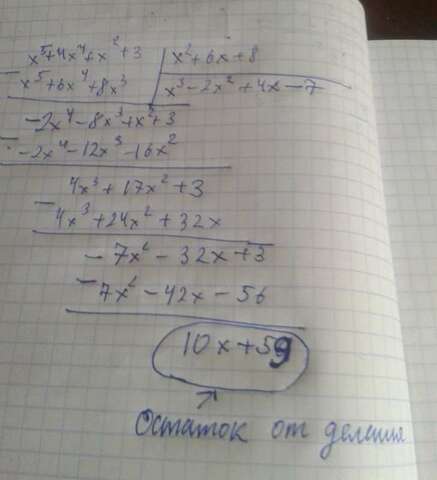 x⁵+4x⁴+x²+3 | x²+6x+8
- x⁵+6x⁴+8x³ | x³-2x²+4x-7
-2x⁴-8x³+x²+3
- -2x⁴-12x³-16x²
4x³+17x²+3
- 4x³+24x²+32x
-7x²-32x+3
- -7x²-42x-56
10x+59
Остаток от деления